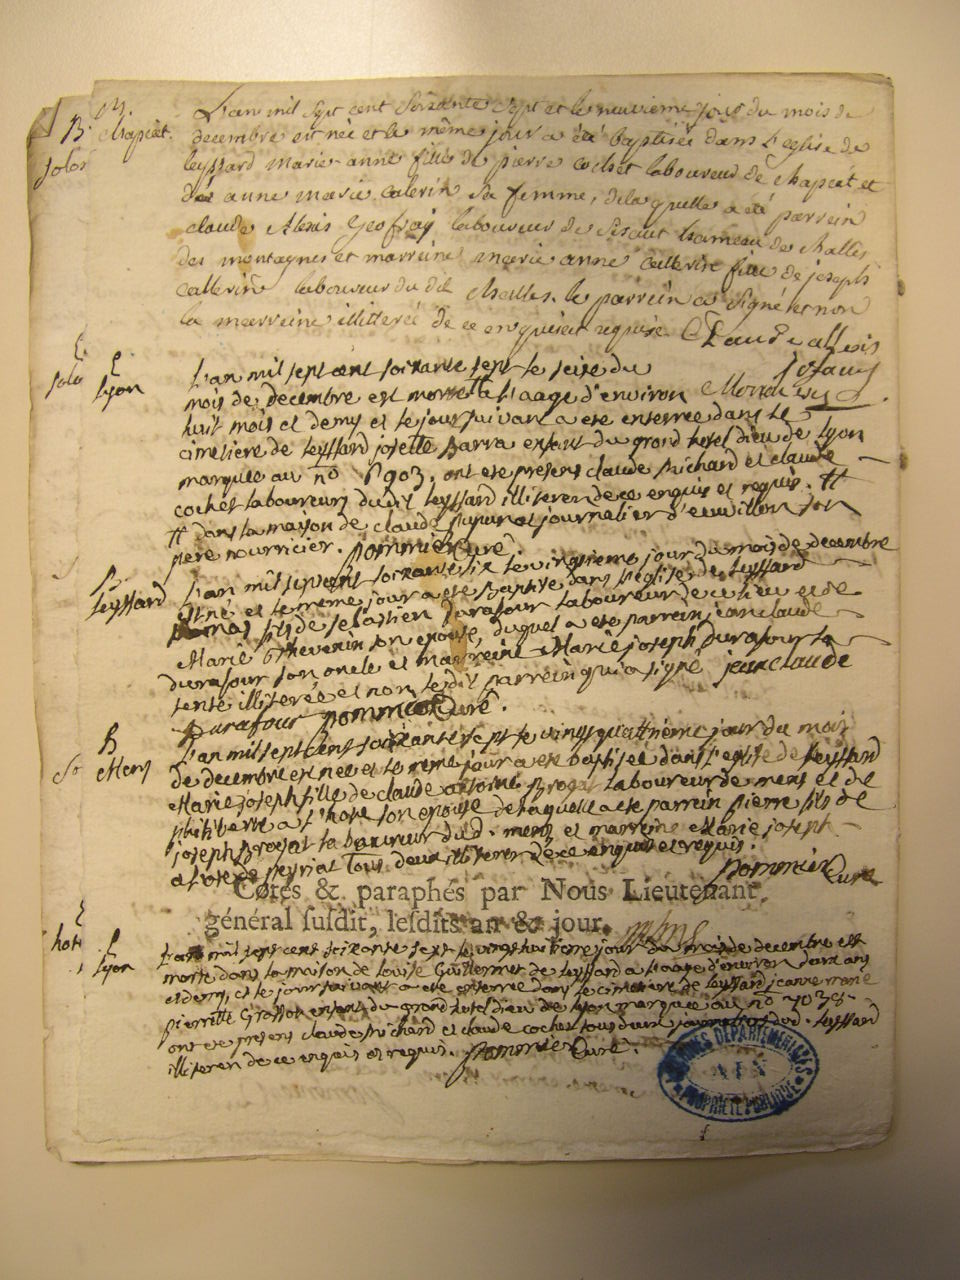 B. Chapiat.
L'an mil sept cent soixante sept et le neuvieme jour du mois de
decembre est née et le même jour a été baptisée dans l'eglise de
leyssard marie anne fille de pierre cochet laboureur de chapiat et
de anne marie calerin sa femme, de laquelle a été parrein
claude Alexis Geofray laboureur de hameau de challes
des montagnes et marreine marie anne callerin fille de joseph
callerin laboureur du dit challes. le parrein a signé et non
la marreine illitterée de ce enquise et requise. Claude allexis
jofray
Lyon
L'an mil sept cent soixante sept le seize du
mois de decembre est morte # a l'aage d'environ
huit mois et demy et le jour suivant a ete enterrée dans le
cimetiere de leyssard josette Barra enfant du grand hotel dieu de Lyon
marquée au no 6903. ont ete presens claude Richard et claude
cochet laboureurs du dit leyssard illiteres de ce enquis et requis. #
# dans la maison de claude journelier d'euvillon son
pere nourricier. pommier Curé.
B
leyssard
L'an mil sept cent soixante six le vingtieme jour du mois de decembre
est né et le meme jour a ete baptisé dans l'eglise de leyssard
thomas fils de sebastien Durafour laboureur de ce lieu et de
Marie thevenin son epouse, duquel a ete parrein jean claude
durafour son oncle et marreine Marie joseph durafour sa
tente illiterée et non le dit parrein qui a signé jean claude
Durafour pommier Curé.
B
Mens
L'an mil sept cens soixante sept le vingt quattrieme jour du mois
de decembre est nee et le meme jour a ete baptisée dans l'eglise de leyssard
Marie joseph fille de claude antoine Brojat laboureur de mens et de
philiberte a l'hote son epouse de laquelle a ete parrein pierre fils de
joseph Brojat laboureur dud. mens et marreine Marie joseph
alote de peyriat tous deux illiteres de ce enquis et requis.
pommier Curé
Cotés & paraphés par Nous Lieutenant
général susdit, lesdits an & jour.
Lyon
L'an mil sept cent soixante sept le vingt huitieme jour du mois de decembre est
morte dans la maison de louise Guillermet de leyssard a l'aage d'environ deux ans
et demy, et le jour suivant a ete enterrée dans le cimetiere de leyssard jeanne marie
pierrette Grosson enfant du grand hotel dieu de lyon marquée au no
ont ete presens claude Richard et claude cochet tous deux journaliers dud. leyssard
illiteres de ce enquis et requis. pommier Curé.
ARCHIVES DEPARTEMENTALES
AIN
PROPRIETE PUBLIQUE